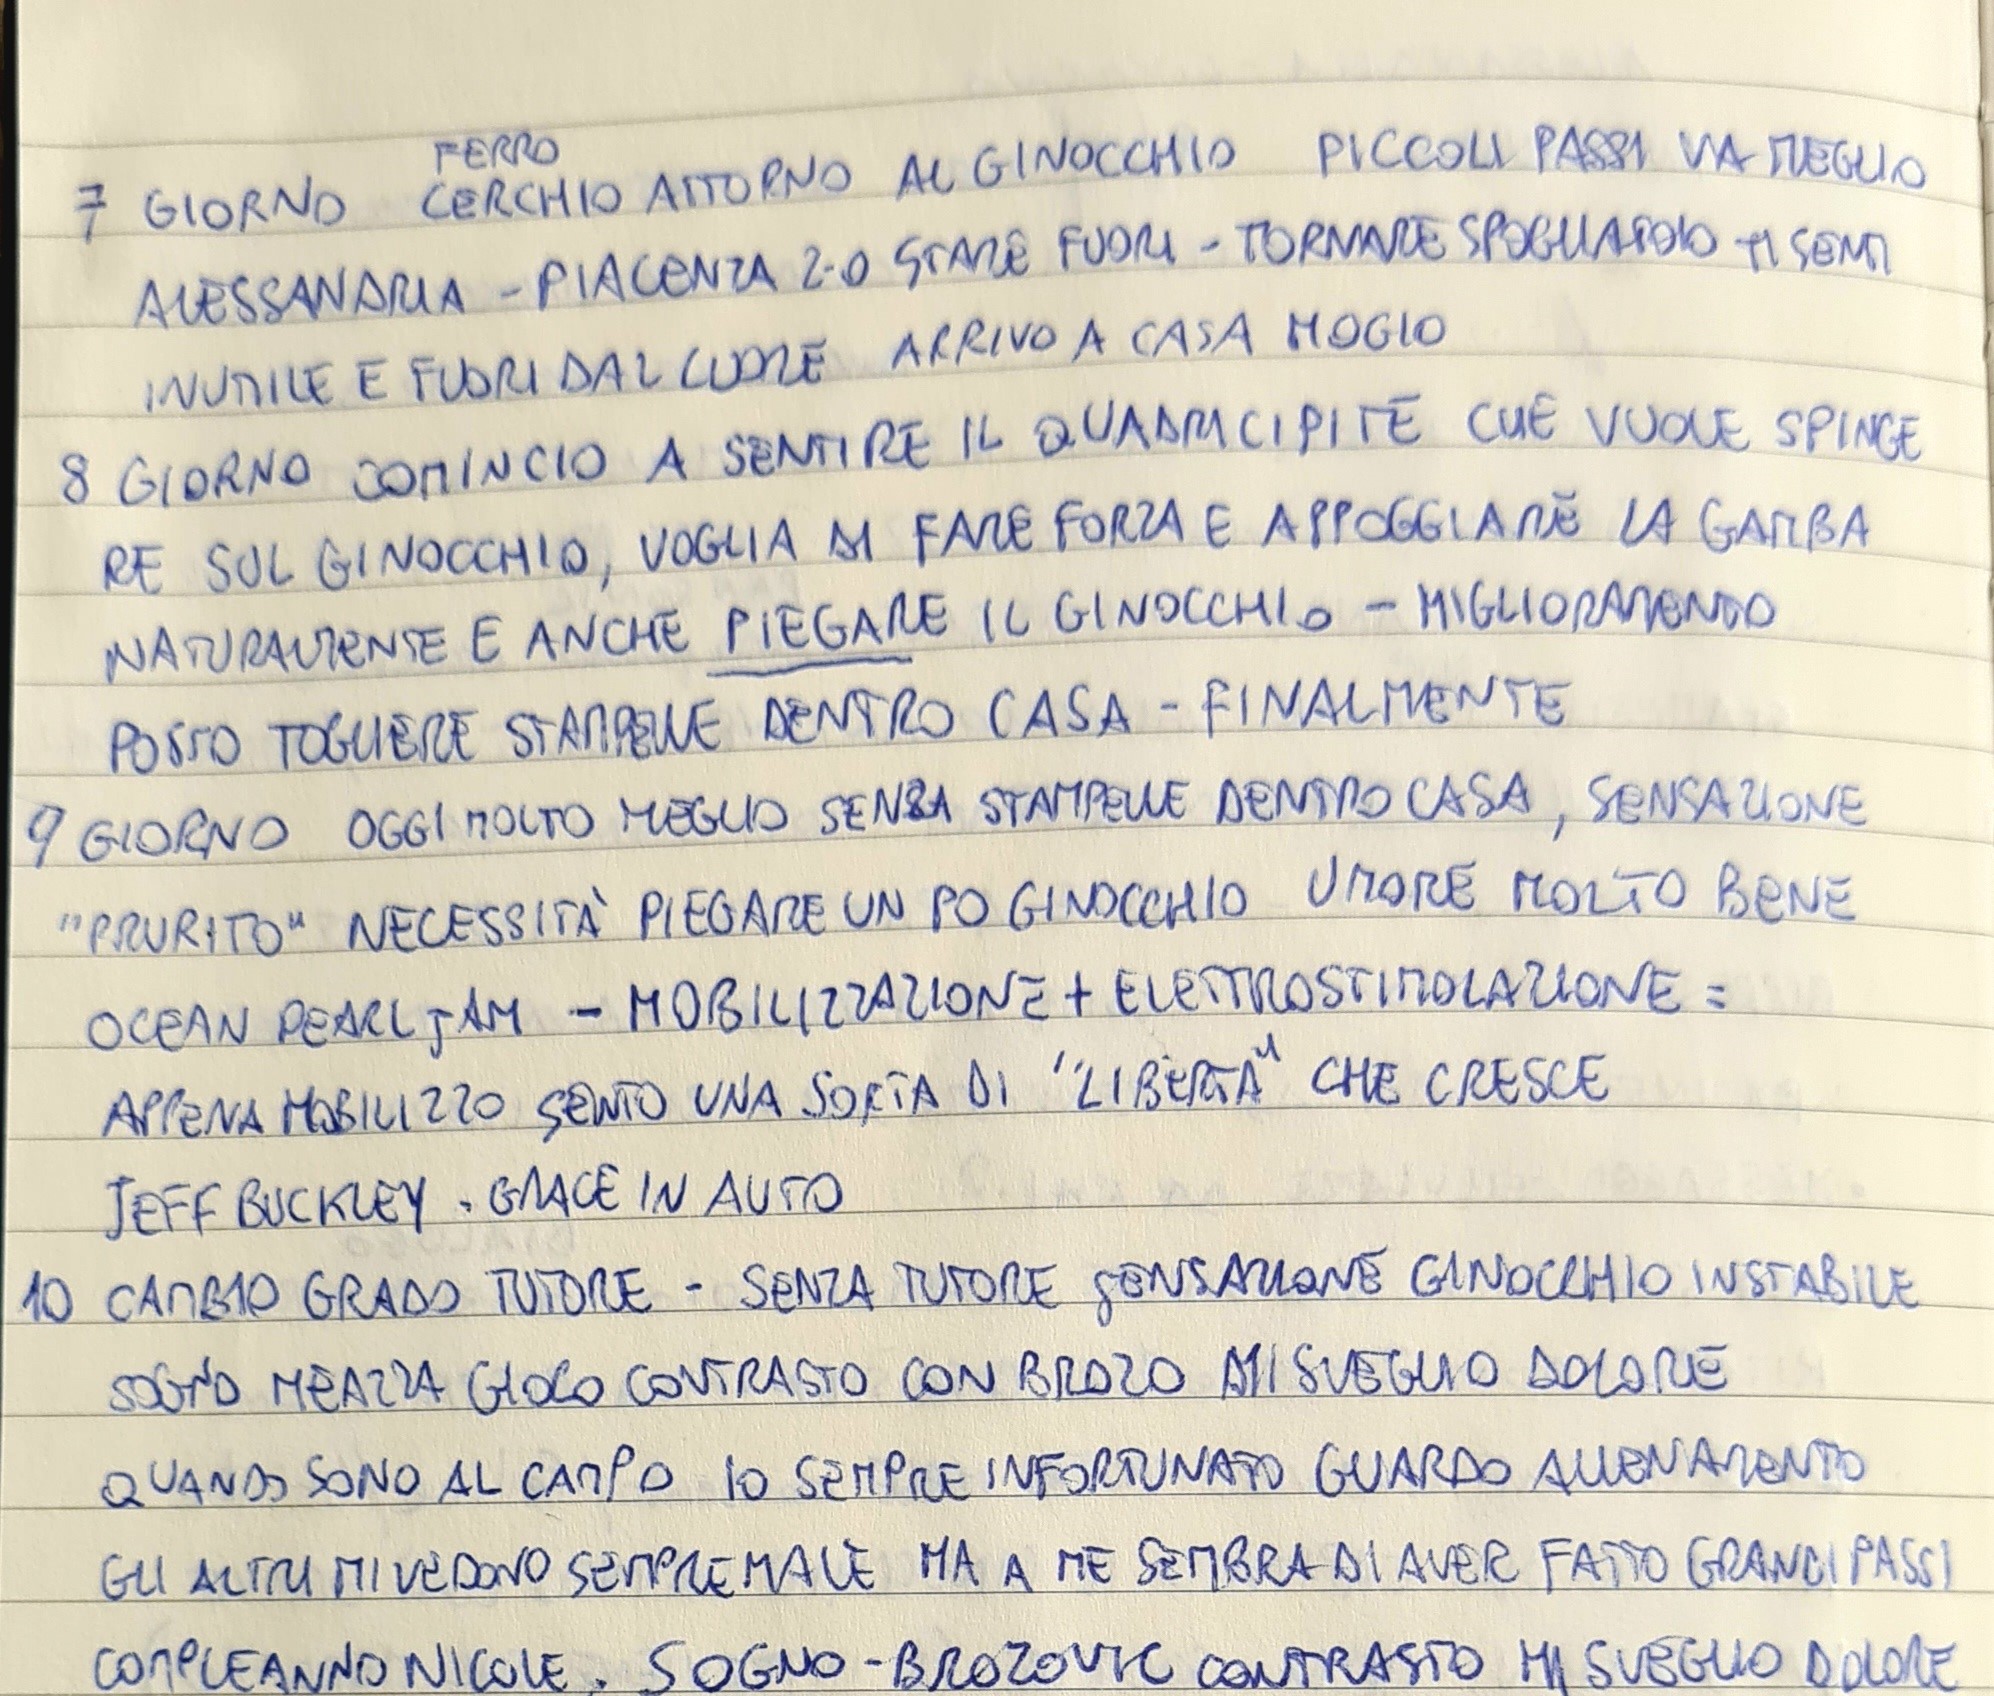 FERRO
7 GIORNO CERCHIO ATTORNO AL GINOCCHIO PICCOLI PASSI VA MEGLIO
ALESSANDRIA - PIACENZA 2-0 STARE FUORI - TORNARE SPOGLIATOIO TI SENTI
INUTILE E FUORI DAL CUORE ARRIVO A CASA MOGIO
8 GIORNO COMINCIO A SENTIRE IL QUADRICIPITE CHE VUOLE SPINGE
RE SUL GINOCCHIO, VOGLIA DI FARE FORZA E APPOGGIARE LA GAMBA
NATURALMENTE E ANCHE PIEGARE IL GINOCCHIO - MIGLIORAMENTO
POSSO TOGLIERE STAMPELLE DENTRO CASA - FINALMENTE
9 GIORNO OGGI MOLTO MEGLIO SENZA STAMPELLE DENTRO CASA, SENSAZIONE
"PRURITO" NECESSITÀ PIEGARE UN PO GINOCCHIO UMORE MOLTO BENE
OCEAN PEARL JAM - MOBILIZZAZIONE + ELETTROSTIMOLAZIONE =
APPENA MOBILIZZO SENTO UNA SORTA DI "LIBERTÀ" CHE CRESCE
JEFF BUCKLEY . GRACE IN AUTO
10 CAMBIO GRADO TUTORE - SENZA TUTORE SENSAZIONE GINOCCHIO INSTABILE
SOGNO MEAZZA GIOCO CONTRASTO CON BROZO MI SVEGLIO DOLORE
QUANDO SONO AL CAMPO IO SEMPRE INFORTUNATO GUARDO ALLENAMENTO
GLI ALTRI MI VEDONO SEMPRE MALE MA A ME SEMBRA DI AVER FATTO GRANDI PASSI
COMPLEANNO NICOLE. SOGNO - BROZOVIC CONTRASTO MI SVEGLIO DOLORE